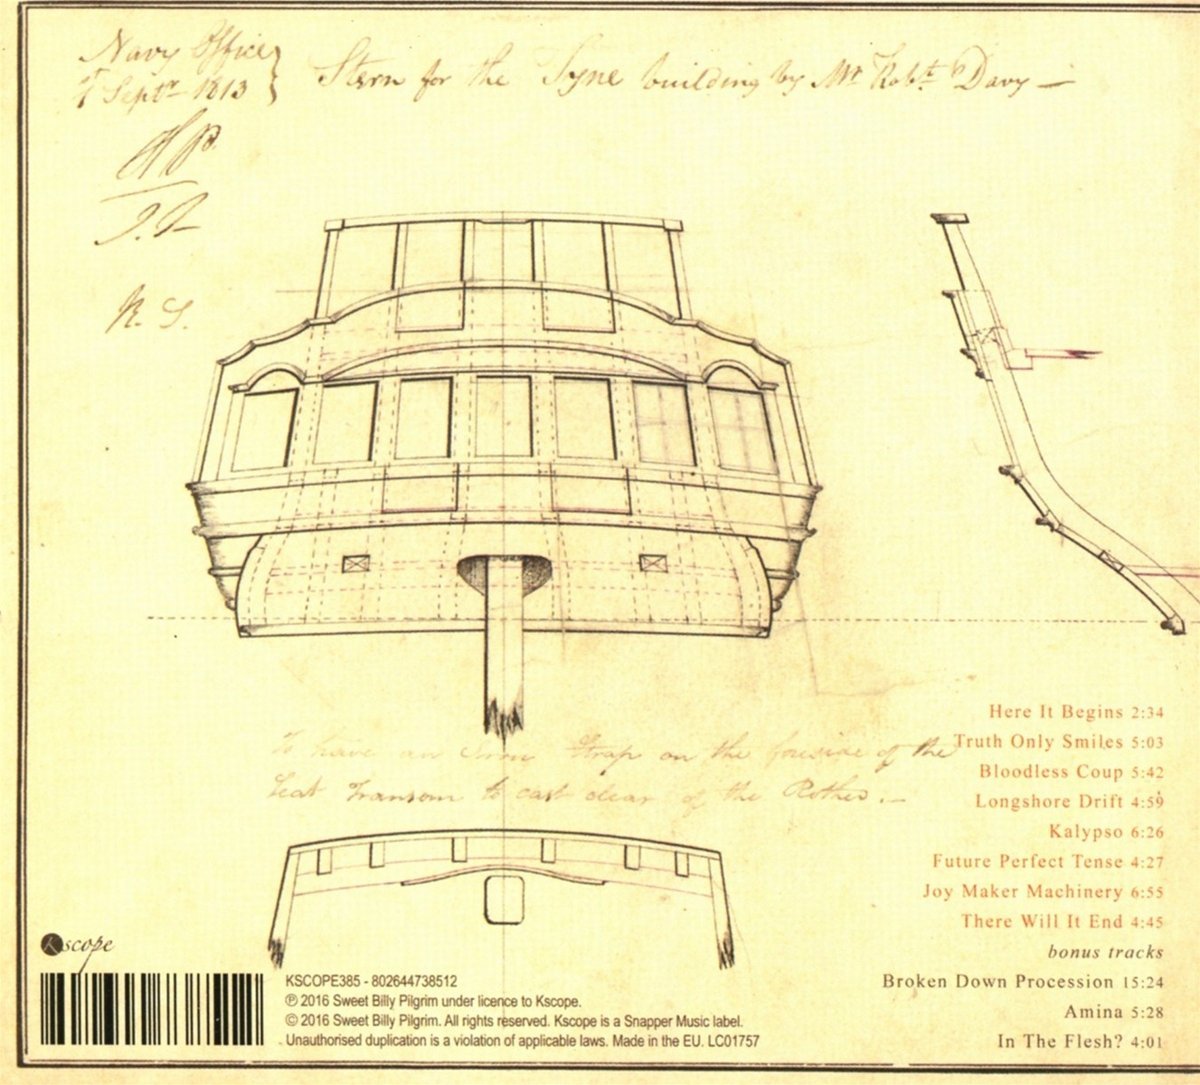 Navy Office
7 Septr 1813
Stern for the Tyne building by Mr Robt Davy —
HP
R. S.
To have an Iron Strap on the foreside of the
Seat Transom to cast clear of the Rother. —
Here It Begins 2:34
Truth Only Smiles 5:03
Bloodless Coup 5:42
Longshore Drift 4:59
Kalypso 6:26
Future Perfect Tense 4:27
Joy Maker Machinery 6:55
There Will It End 4:45
bonus tracks
Broken Down Procession 15:24
Amina 5:28
In The Flesh? 4:01
Kscope
KSCOPE385 - 802644738512
℗ 2016 Sweet Billy Pilgrim under licence to Kscope.
© 2016 Sweet Billy Pilgrim. All rights reserved. Kscope is a Snapper Music label.
Unauthorised duplication is a violation of applicable laws. Made in the EU. LC01757